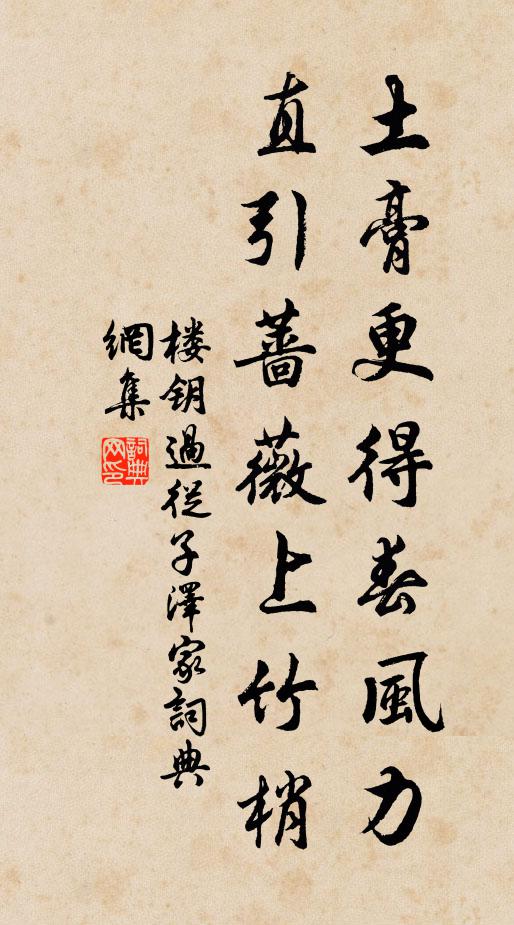 土膏更得春風力
直引薔薇上竹梢
楼钥過從子澤家詞典
網集
詞典
网印